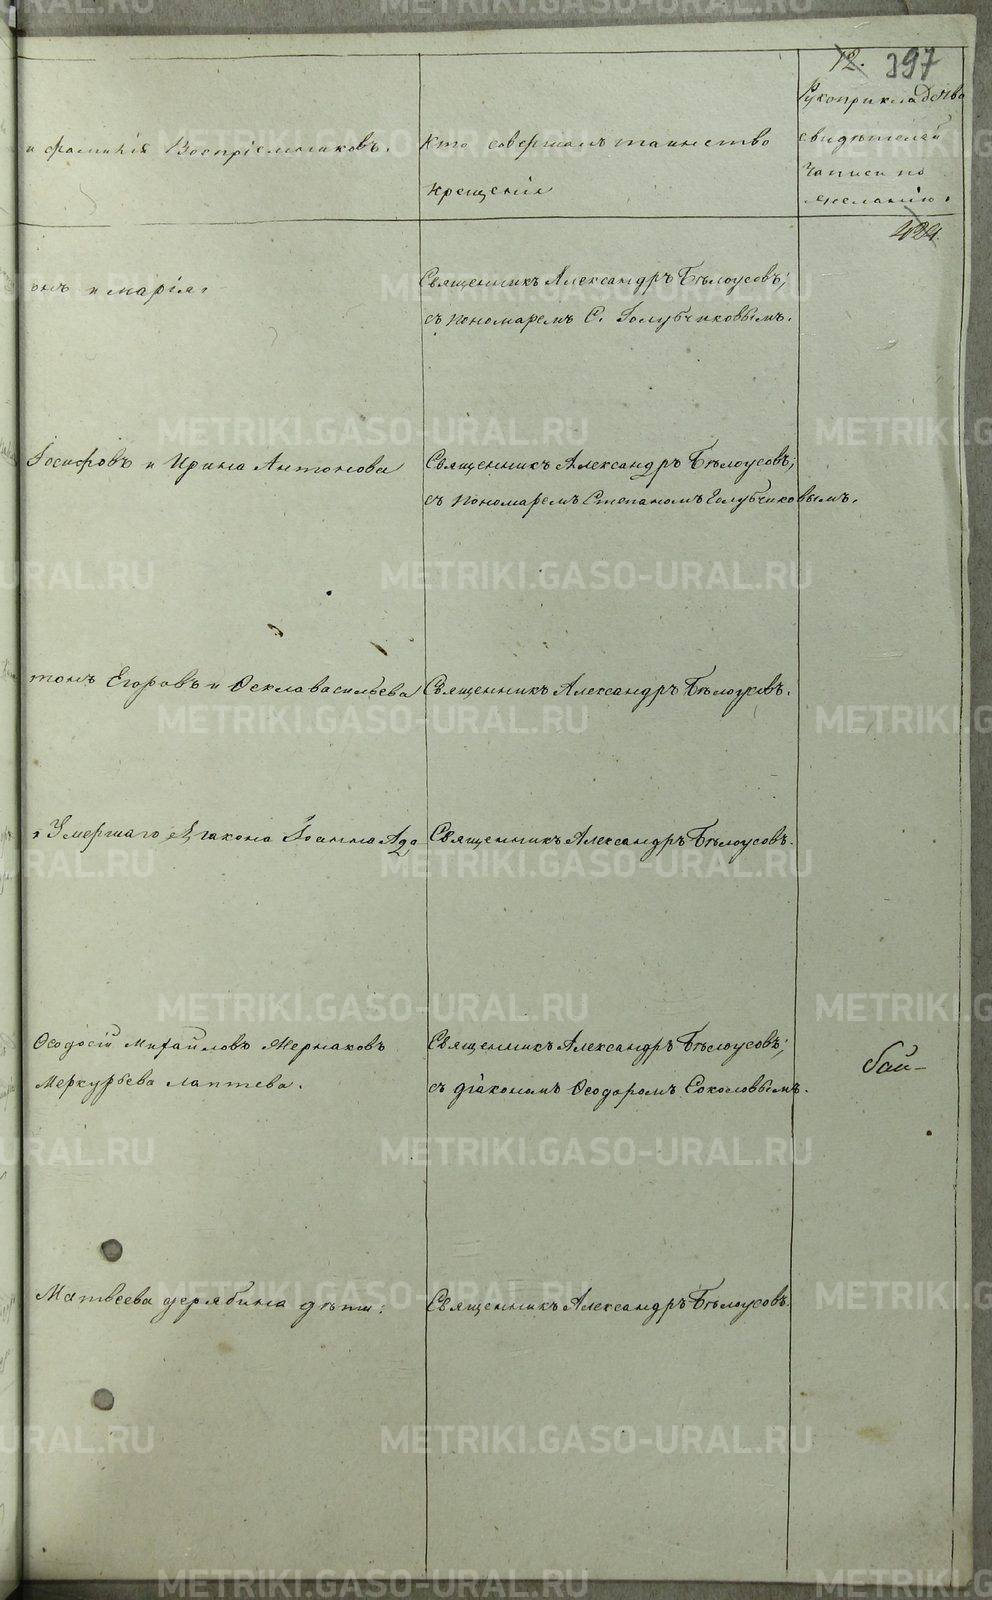 12. 397
и фамилія Воспріемниковъ.
Кто совершалъ таинство
крещенія
Рукоприкладство
свидѣтелей
записи по
желанію.
424.
онъ и Марія.
Священникъ Александръ Бѣлоусовъ;
съ пономаремъ С. Голубчиковымъ.
Іосифовъ и Ирина Антонова
Священникъ Александръ Бѣлоусовъ;
съ пономаремъ Степаномъ Голубчиковымъ.
тонъ Егоровъ и Ѳекла Васильева
Священникъ Александръ Бѣлоусовъ.
Умершаго Діакона Іоанна Адо
Священникъ Александръ Бѣлоусовъ.
Ѳеодосій Михайловъ Жернаковъ
Меркурьева Лаптева.
Священникъ Александръ Бѣлоусовъ;
съ діакономъ Ѳеодоромъ Соколовымъ.
бай-
Матвеева Дерябина дѣти:
Священникъ Александръ Бѣлоусовъ.
METRIKI.GASO-URAL.RU